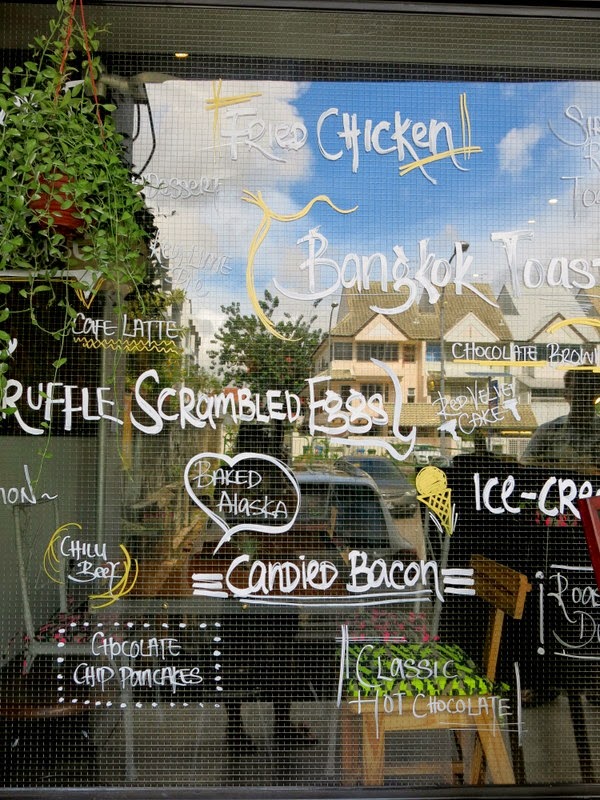 Fried Chicken!
Dessert
Bangkok Toast
Cafe Latte
Chocolate Brown
Truffle Scrambled Eggs
Red Velvet
Cake
Baked
Alaska
Ice-Crea
mon~
Chili
Beef
Candied Bacon
Chocolate
Chip Pancakes
Classic
Hot Chocolate